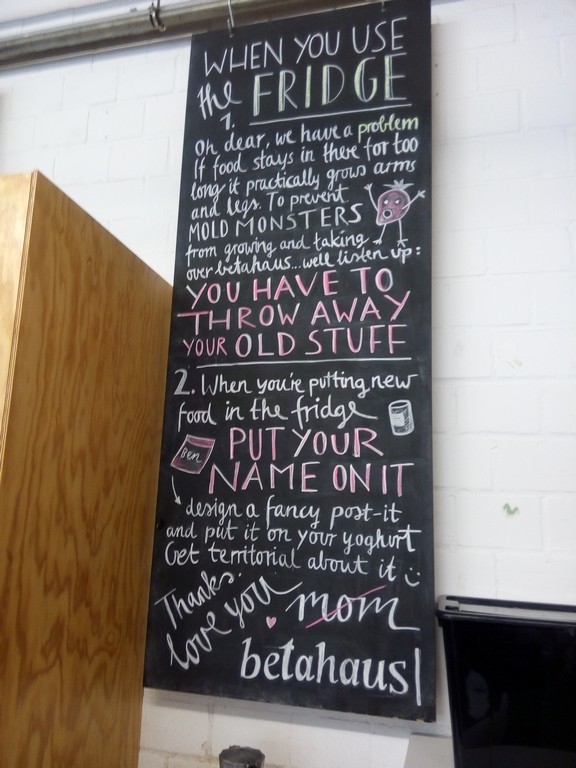 WHEN YOU USE
the FRIDGE
1.
Oh dear, we have a problem
If food stays in there for too
long it practically grows arms
and legs. To prevent
MOLD MONSTERS
from growing and taking
over betahaus...well listen up:
YOU HAVE TO
THROW AWAY
YOUR OLD STUFF
2. When you're putting new
food in the fridge
PUT YOUR
Ben
NAME ON IT
design a fancy post-it
and put it on your yoghurt
Get territorial about it :)
Thanks.
love you
mom
betahaus|